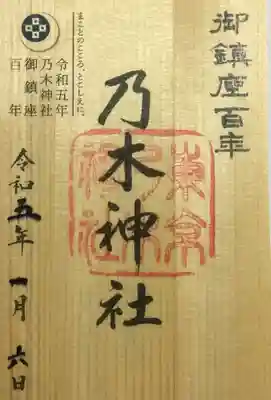 御鎮座百年
乃木神社
東京
乃木
神社
まことのこころ、とこしえに。
令和五年
乃木神社
御鎮座
百年
令和五年 一月 六日